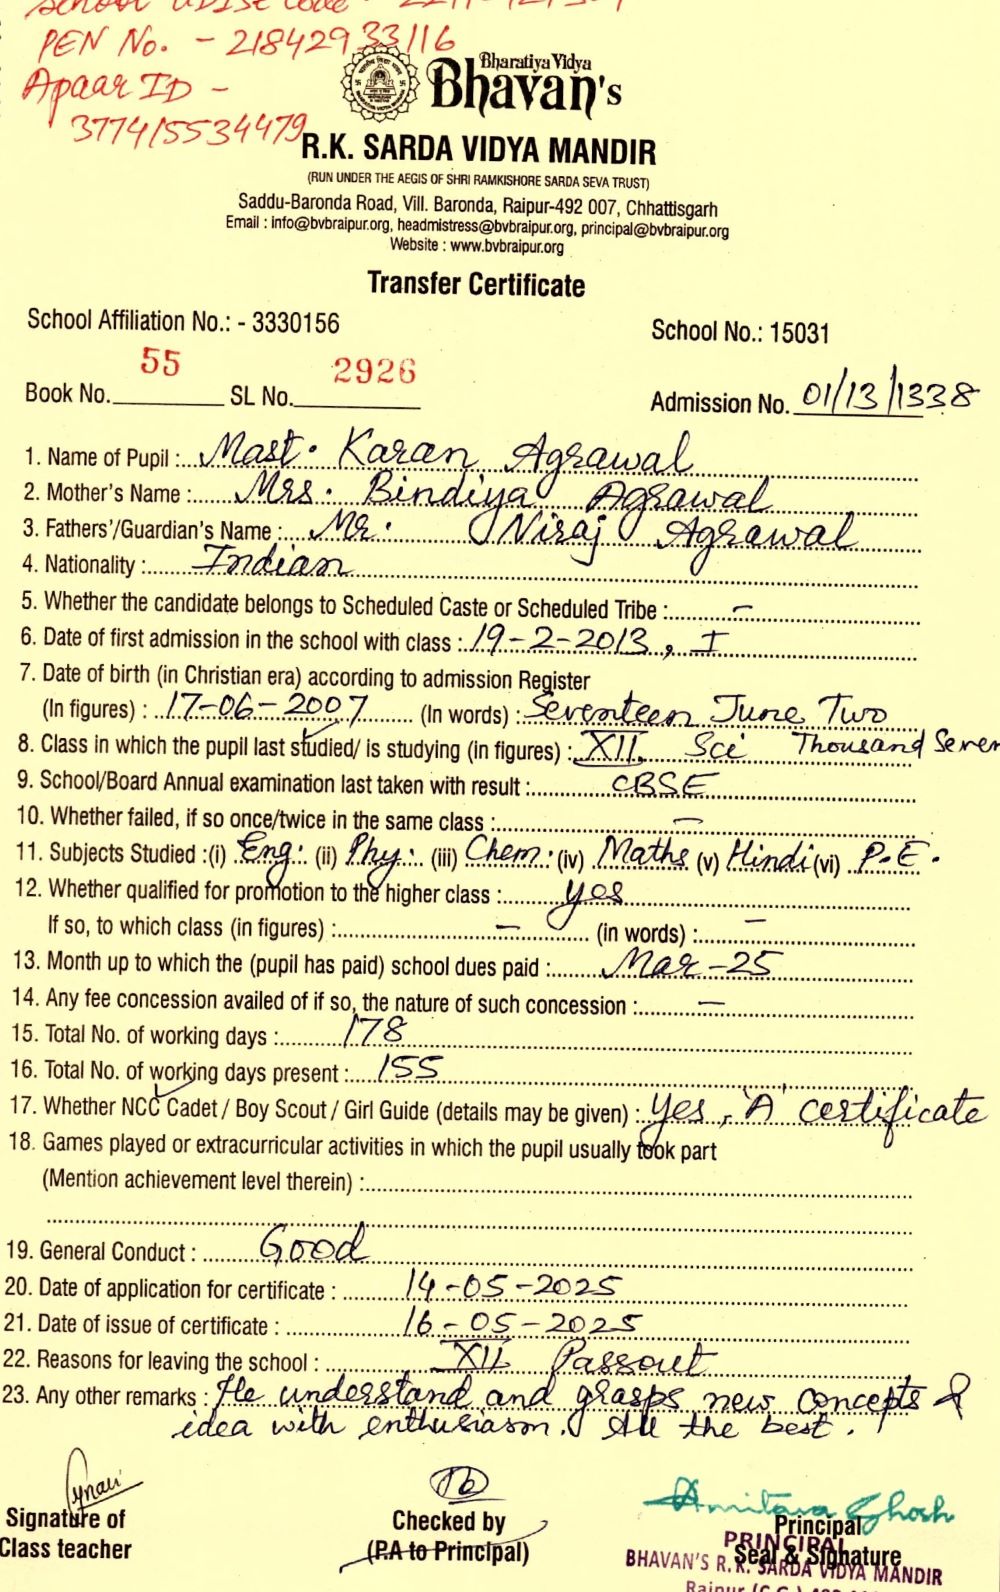 School UDISE Code -
PEN No. - 21842933116
Apaar ID -
377415534479
Bharatiya Vidya
Bhavan's
R.K. SARDA VIDYA MANDIR
(RUN UNDER THE AEGIS OF SHRI RAMKISHORE SARDA SEVA TRUST)
Saddu-Baronda Road, Vill. Baronda, Raipur-492 007, Chhattisgarh
Email : info@bvbraipur.org, headmistress@bvbraipur.org, principal@bvbraipur.org
Website : www.bvbraipur.org
Transfer Certificate
School Affiliation No.: - 3330156
School No.: 15031
Book No. 55 SL No. 2926
Admission No. 01/13/1338
1. Name of Pupil : Mast. Karan Agrawal
2. Mother's Name : Mrs. Bindiya Agrawal
3. Fathers'/Guardian's Name : Mr. Niraj Agrawal
4. Nationality : Indian
5. Whether the candidate belongs to Scheduled Caste or Scheduled Tribe : -
6. Date of first admission in the school with class : 19-2-2013, I
7. Date of birth (in Christian era) according to admission Register
(In figures) : 17-06-2007 (In words) : Seventeen June Two
Thousand Seven
8. Class in which the pupil last studied/ is studying (in figures) : XII Sci
9. School/Board Annual examination last taken with result : CBSE
10. Whether failed, if so once/twice in the same class : -
11. Subjects Studied :(i) Eng. (ii) Phy. (iii) Chem. (iv) Maths (v) Hindi (vi) P.E.
12. Whether qualified for promotion to the higher class : yes
If so, to which class (in figures) : - (in words) : -
13. Month up to which the (pupil has paid) school dues paid : Mar-25
14. Any fee concession availed of if so, the nature of such concession : -
15. Total No. of working days : 178
16. Total No. of working days present : 155
17. Whether NCC Cadet / Boy Scout / Girl Guide (details may be given) : Yes, 'A' certificate
18. Games played or extracurricular activities in which the pupil usually took part
(Mention achievement level therein) :
19. General Conduct : Good
20. Date of application for certificate : 14-05-2025
21. Date of issue of certificate : 16-05-2025
22. Reasons for leaving the school : XII Passout
23. Any other remarks : He understand and grasps new concepts &
idea with enthusiasm. All the best.
Signature of
Class teacher
Checked by
(P.A to Principal)
Amitava Ghosh
Principal
Seal & Signature
PRINCIPAL
BHAVAN'S R.K. SARDA VIDYA MANDIR